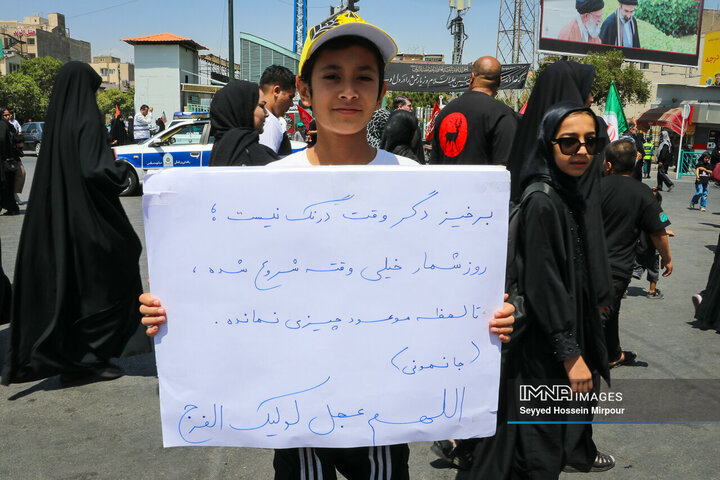 برخیز دگر وقت درنگ نیست ؛
روز شمار خیلی وقته شروع شده ،
تا لحظه موعود چیزی نمانده .
(جانمونی)
اللهم عجل لولیک الفرج
IMNA IMAGES
Seyyed Hossein Mirpour